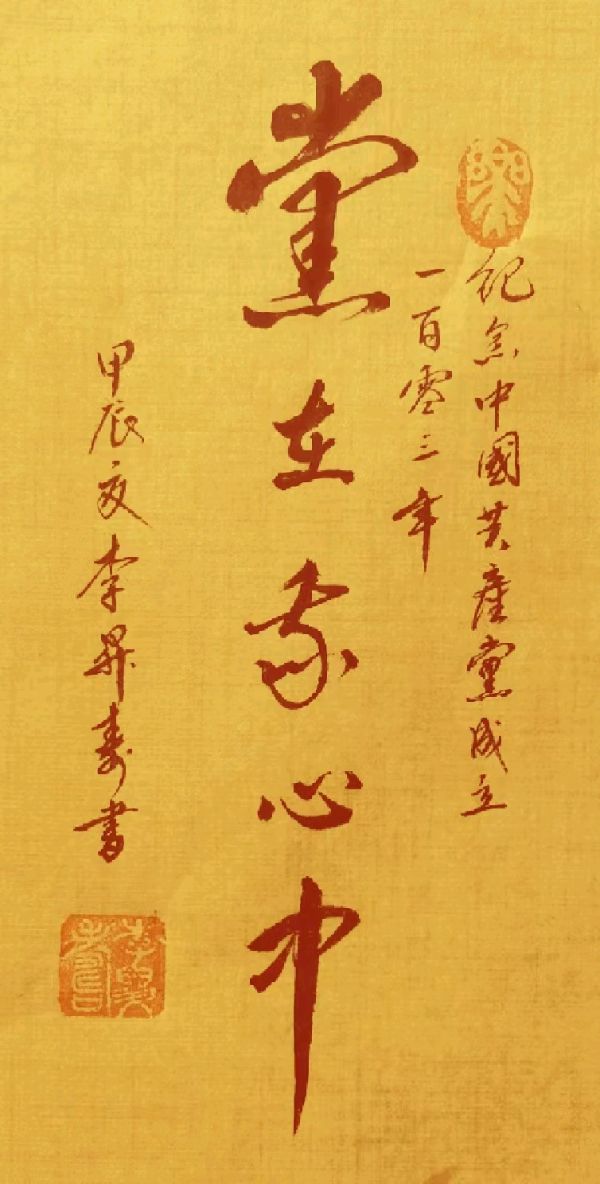 紀念中國共產黨成立
一百零三年
黨在我心中
甲辰夏李昇壽書